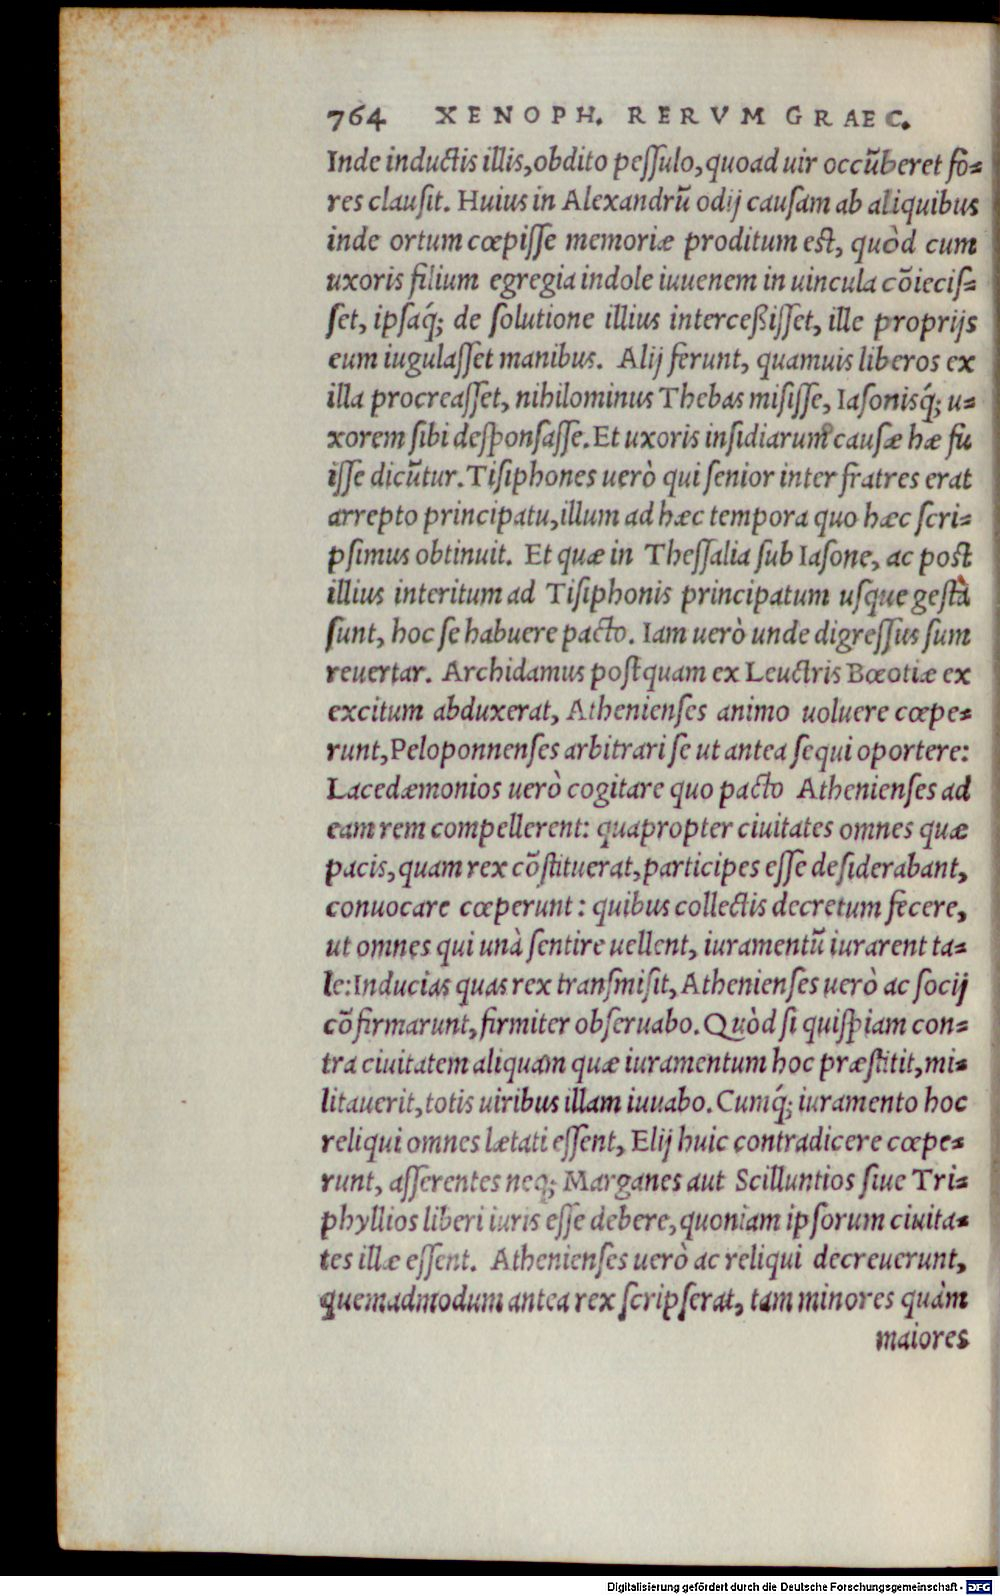 764 XENOPH. RERVM GRAEC.
Inde inductis illis, obdito pessulo, quoad uir occũberet fo-
res clausit. Huius in Alexandrũ odij causam ab aliquibus
inde ortum cœpisse memoriæ proditum est, quòd cum
uxoris filium egregia indole iuuenem in uincula cõiecis-
set, ipsaq́; de solutione illius interceßisset, ille proprijs
eum iugulasset manibus. Alij ferunt, quamuis liberos ex
illa procreasset, nihilominus Thebas misisse, Iasonisq́; u-
xorem sibi desponsasse. Et uxoris insidiarum causæ hæ fu
isse dicũtur. Tisiphones uerò qui senior inter fratres erat
arrepto principatu, illum ad hæc tempora quo hæc scri-
psimus obtinuit. Et quæ in Thessalia sub Iasone, ac post
illius interitum ad Tisiphonis principatum usque gesta
sunt, hoc se habuere pacto. Iam uerò unde digressus sum
reuertar. Archidamus postquam ex Leuctris Bœotiæ ex
excitum abduxerat, Athenienses animo uoluere cœpe-
runt, Peloponnenses arbitrari se ut antea sequi oportere:
Lacedæmonios uerò cogitare quo pacto Athenienses ad
eam rem compellerent: quapropter ciuitates omnes quæ
pacis, quam rex cõstituerat, participes esse desiderabant,
conuocare cœperunt: quibus collectis decretum fecere,
ut omnes qui unà sentire uellent, iuramentũ iurarent ta-
le: Inducias quas rex transmisit, Athenienses uerò ac socij
cõfirmarunt, firmiter obseruabo. Quòd si quispiam con-
tra ciuitatem aliquam quæ iuramentum hoc præstitit, mi-
litauerit, totis uiribus illam iuuabo. Cumq́; iuramento hoc
reliqui omnes lætati essent, Elij huic contradicere cœpe-
runt, asserentes neq; Marganes aut Scilluntios siue Tri-
phyllios liberi iuris esse debere, quoniam ipsorum ciuita-
tes illæ essent. Athenienses uerò ac reliqui decreuerunt,
quemadmodum antea rex scripserat, tam minores quàm
maiores
Digitalisierung gefördert durch die Deutsche Forschungsgemeinschaft - DFG